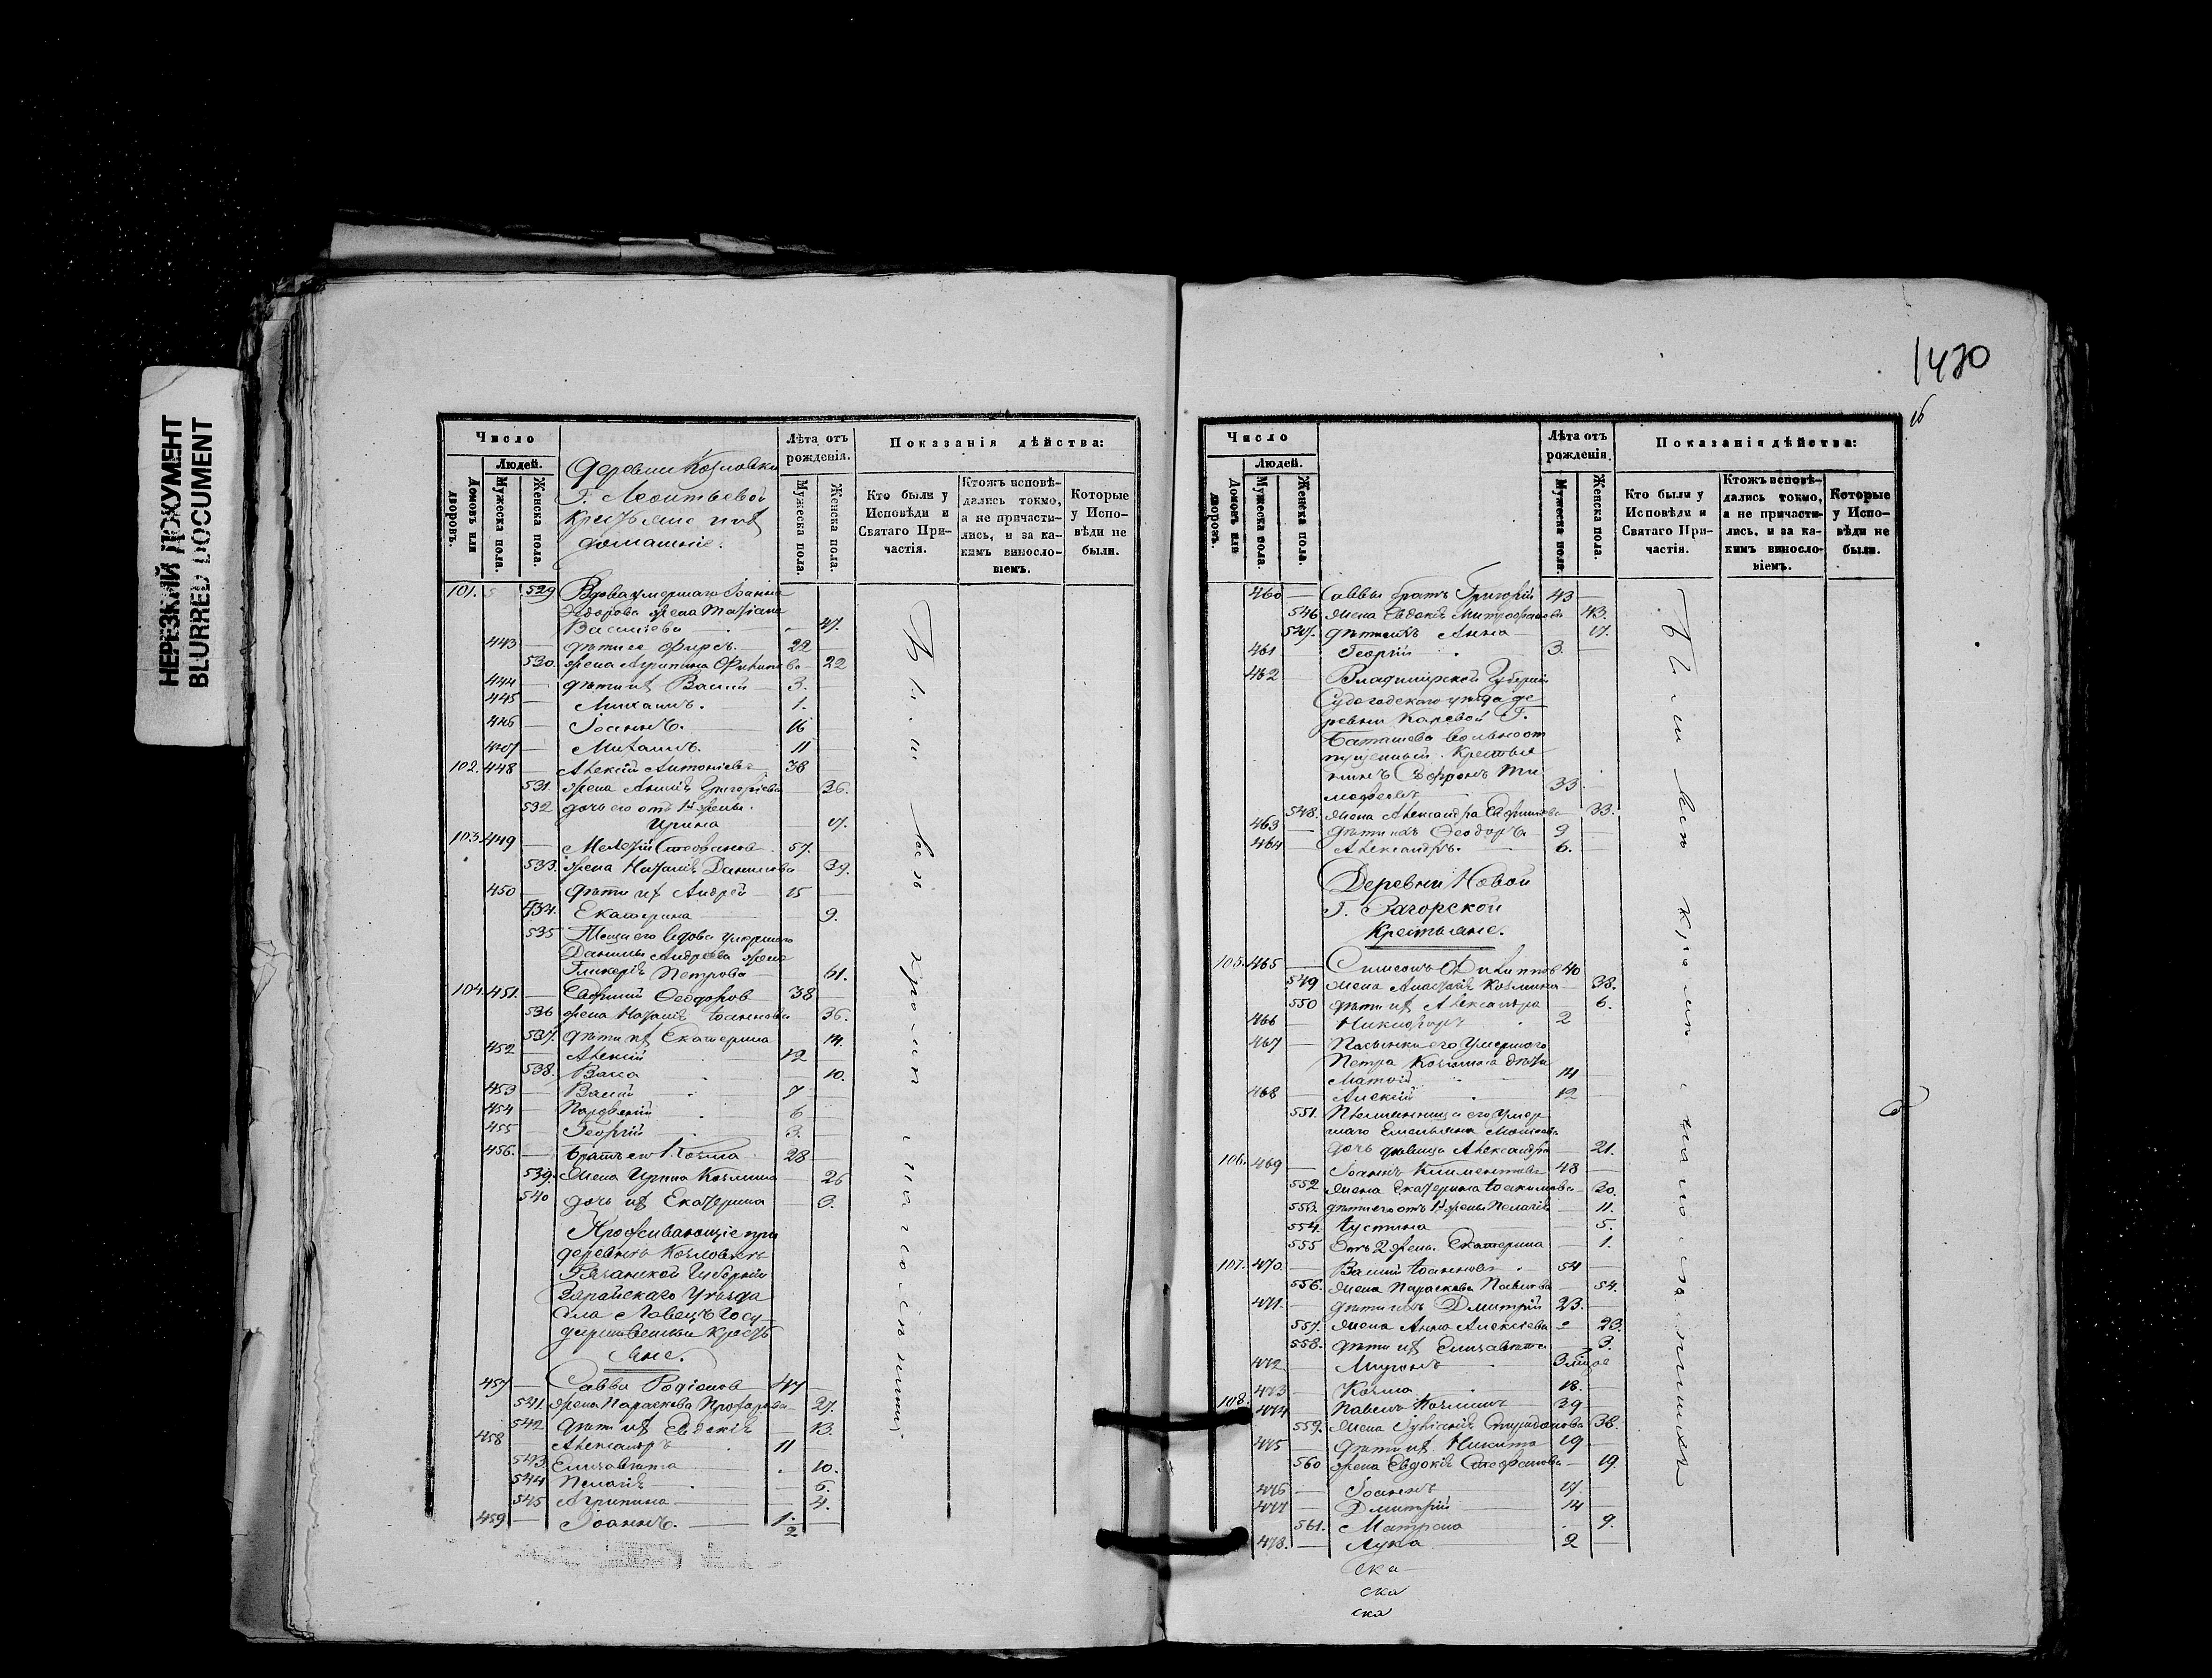 НЕРЕЗКИЙ ДОКУМЕНТ
BLURRED DOCUMENT
Число
Людей.
Домовъ или дворовъ.
Мужеска пола.
Женска пола.
Деревни Козловки
Г. Леонтьевой
крестьяне и их
домашніе.
Лѣта отъ рожденія.
Мужеска пола.
Женска пола.
Показанія дѣйства:
Кто были у Исповѣди и Святаго Причастія.
Ктожъ исповѣдались токмо, а не причастились, и за какимъ винословіемъ.
Которые у Исповѣди не были.
101. 529 Вдова умершаго Іоанна
Ѳедорова жена Татіана
Васильева 47.
443 дѣти ея Фирсъ. 22
530. жена Агрипина Филипова 22
444 дѣти их Василій 3.
445 Михаилъ. 1.
446 Іоаннъ. 16
447 Михаилъ. 11
102. 448 Алексій Антоніевъ 38
531. жена Анисія Григоріева 36.
532 дочь его отъ 1й жены.
Ирина 17.
103. 449 Мелетій Стефановъ 57.
533. жена Наталія Данилова 39.
450 дѣти их Андрей 15
534. Екатерина 9.
535 Теща его вдова умершаго
Данилы Андреева жена
Гликерія Петрова 61.
104. 451. Евфимій Ѳеодоровъ 38
536 жена Наталія Іоаннова 36.
537. дѣти их Екатерина 14.
452 Алексій 12
538. Васса 10.
453 Василій 7
454 Парфеній 6
455 Георгій 3.
456. братъ его Козма 28
539. жена Ирина Козмина 26
540 дочь их Екатерина 3.
Проживающіе при
деревнѣ Козловкѣ
Рязанской Губерніи
Зарайскаго Уѣзда
села Ловецъ Госу-
дарственные кресть
яне.
457 Савва Родіоновъ 47
541. жена Параскева Прохорова 27.
542 дѣти их Евдокія 13.
458 Александръ 11
543. Елизавета 10.
544 Пелагія 6.
545 Агрипина 4.
459 Іоаннъ. 1/2
Были всѣ кромѣ
1420
16
Число
Людей.
Домовъ или дворовъ.
Мужеска пола.
Женска пола.
Лѣта отъ рожденія.
Мужеска пола.
Женска пола.
Показанія дѣйства:
Кто были у Исповѣди и Святаго Причастія.
Ктожъ исповѣдались токмо, а не причастились, и за какимъ винословіемъ.
Которые у Исповѣди не были.
460 Саввы братъ Григорій 43
546 жена Евдокія Митрофанова 43.
547. дѣти ихъ Анна 17.
461 Георгій 3.
462 Владимірской Губерніи
Судогодскаго уѣзда де-
ревни Каревой Г.
Баташева вольноот
пущенный крестья
нинъ Софронъ Ти
мофеевъ 33
548. жена Александра Евфимова 33.
463 дѣти ихъ Ѳеодоръ 9
464 Александръ. 6.
Деревни Новой
Г. Загорской
Крестьяне.
105. 465 Симеонъ Филипповъ 40
549 жена Анастасія Козмина 38.
550 дѣти их Александра 6.
466 Никифоръ 2
467 Пасынки его умершаго
Петра Козмина дѣти
Матвій 14
468 Алексій 12
551. Племянница его умер
шаго Емельяна Моисеева
дочь дѣвица Александра 21.
106. 469 Іоаннъ Климентовъ 48
552 жена Екатерина Іоакимова 30.
553. дѣти его отъ 1й жены Пелагія 11.
554. Іустина 5.
555 Отъ 2 жены Екатерина 1.
107. 470. Василій Іоанновъ 54
556. жена Параскева Павлова 54.
471. дѣти ихъ Димитрій 23.
557. жена Анна Алексіева 23.
558. дѣти их Елизавета 3.
472 Миронъ
473 Козма 18.
108. 474 Павелъ Козминъ 39
559. жена Іуліанія Спиридонова 38.
475 дѣти их Никита 19
560 жена Евдокія Стефанова 19.
476 Іоаннъ 17.
477 Димитрій 14
561. Матрона 9.
478. Лука 2
Были всѣ кромѣ
ска
ска
ска